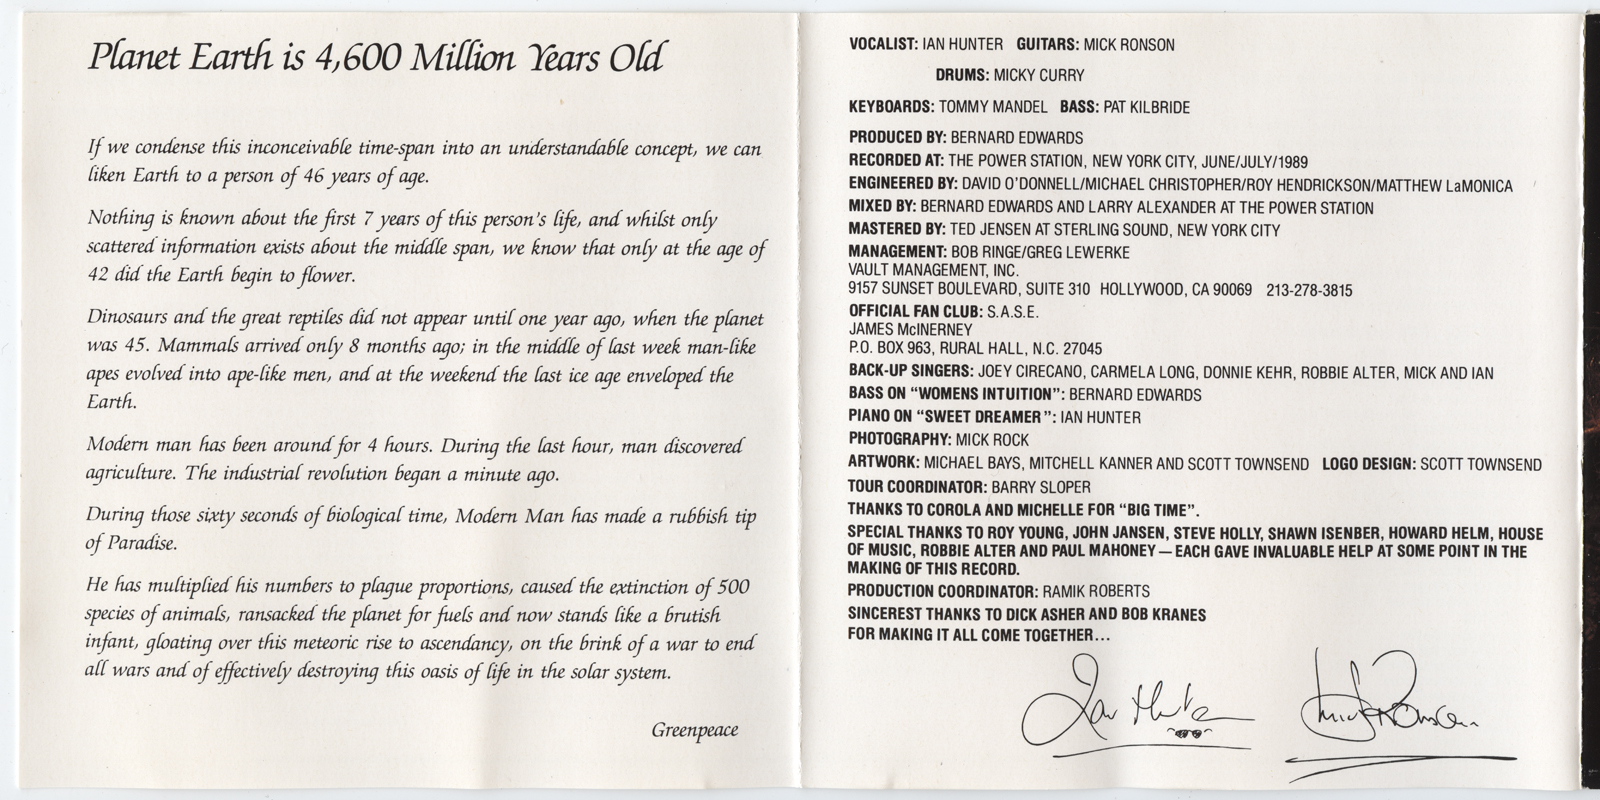 Planet Earth is 4,600 Million Years Old
If we condense this inconceivable time-span into an understandable concept, we can
liken Earth to a person of 46 years of age.
Nothing is known about the first 7 years of this person's life, and whilst only
scattered information exists about the middle span, we know that only at the age of
42 did the Earth begin to flower.
Dinosaurs and the great reptiles did not appear until one year ago, when the planet
was 45. Mammals arrived only 8 months ago; in the middle of last week man-like
apes evolved into ape-like men, and at the weekend the last ice age enveloped the
Earth.
Modern man has been around for 4 hours. During the last hour, man discovered
agriculture. The industrial revolution began a minute ago.
During those sixty seconds of biological time, Modern Man has made a rubbish tip
of Paradise.
He has multiplied his numbers to plague proportions, caused the extinction of 500
species of animals, ransacked the planet for fuels and now stands like a brutish
infant, gloating over this meteoric rise to ascendancy, on the brink of a war to end
all wars and of effectively destroying this oasis of life in the solar system.
Greenpeace
VOCALIST: IAN HUNTER GUITARS: MICK RONSON
DRUMS: MICKY CURRY
KEYBOARDS: TOMMY MANDEL BASS: PAT KILBRIDE
PRODUCED BY: BERNARD EDWARDS
RECORDED AT: THE POWER STATION, NEW YORK CITY, JUNE/JULY/1989
ENGINEERED BY: DAVID O'DONNELL/MICHAEL CHRISTOPHER/ROY HENDRICKSON/MATTHEW LaMONICA
MIXED BY: BERNARD EDWARDS AND LARRY ALEXANDER AT THE POWER STATION
MASTERED BY: TED JENSEN AT STERLING SOUND, NEW YORK CITY
MANAGEMENT: BOB RINGE/GREG LEWERKE
VAULT MANAGEMENT, INC.
9157 SUNSET BOULEVARD, SUITE 310 HOLLYWOOD, CA 90069 213-278-3815
OFFICIAL FAN CLUB: S.A.S.E.
JAMES McINERNEY
P.O. BOX 963, RURAL HALL, N.C. 27045
BACK-UP SINGERS: JOEY CIRECANO, CARMELA LONG, DONNIE KEHR, ROBBIE ALTER, MICK AND IAN
BASS ON "WOMENS INTUITION": BERNARD EDWARDS
PIANO ON "SWEET DREAMER": IAN HUNTER
PHOTOGRAPHY: MICK ROCK
ARTWORK: MICHAEL BAYS, MITCHELL KANNER AND SCOTT TOWNSEND LOGO DESIGN: SCOTT TOWNSEND
TOUR COORDINATOR: BARRY SLOPER
THANKS TO COROLA AND MICHELLE FOR "BIG TIME".
SPECIAL THANKS TO ROY YOUNG, JOHN JANSEN, STEVE HOLLY, SHAWN ISENBER, HOWARD HELM, HOUSE
OF MUSIC, ROBBIE ALTER AND PAUL MAHONEY—EACH GAVE INVALUABLE HELP AT SOME POINT IN THE
MAKING OF THIS RECORD.
PRODUCTION COORDINATOR: RAMIK ROBERTS
SINCEREST THANKS TO DICK ASHER AND BOB KRANES
FOR MAKING IT ALL COME TOGETHER...
Ian Hunter Mick Ronson